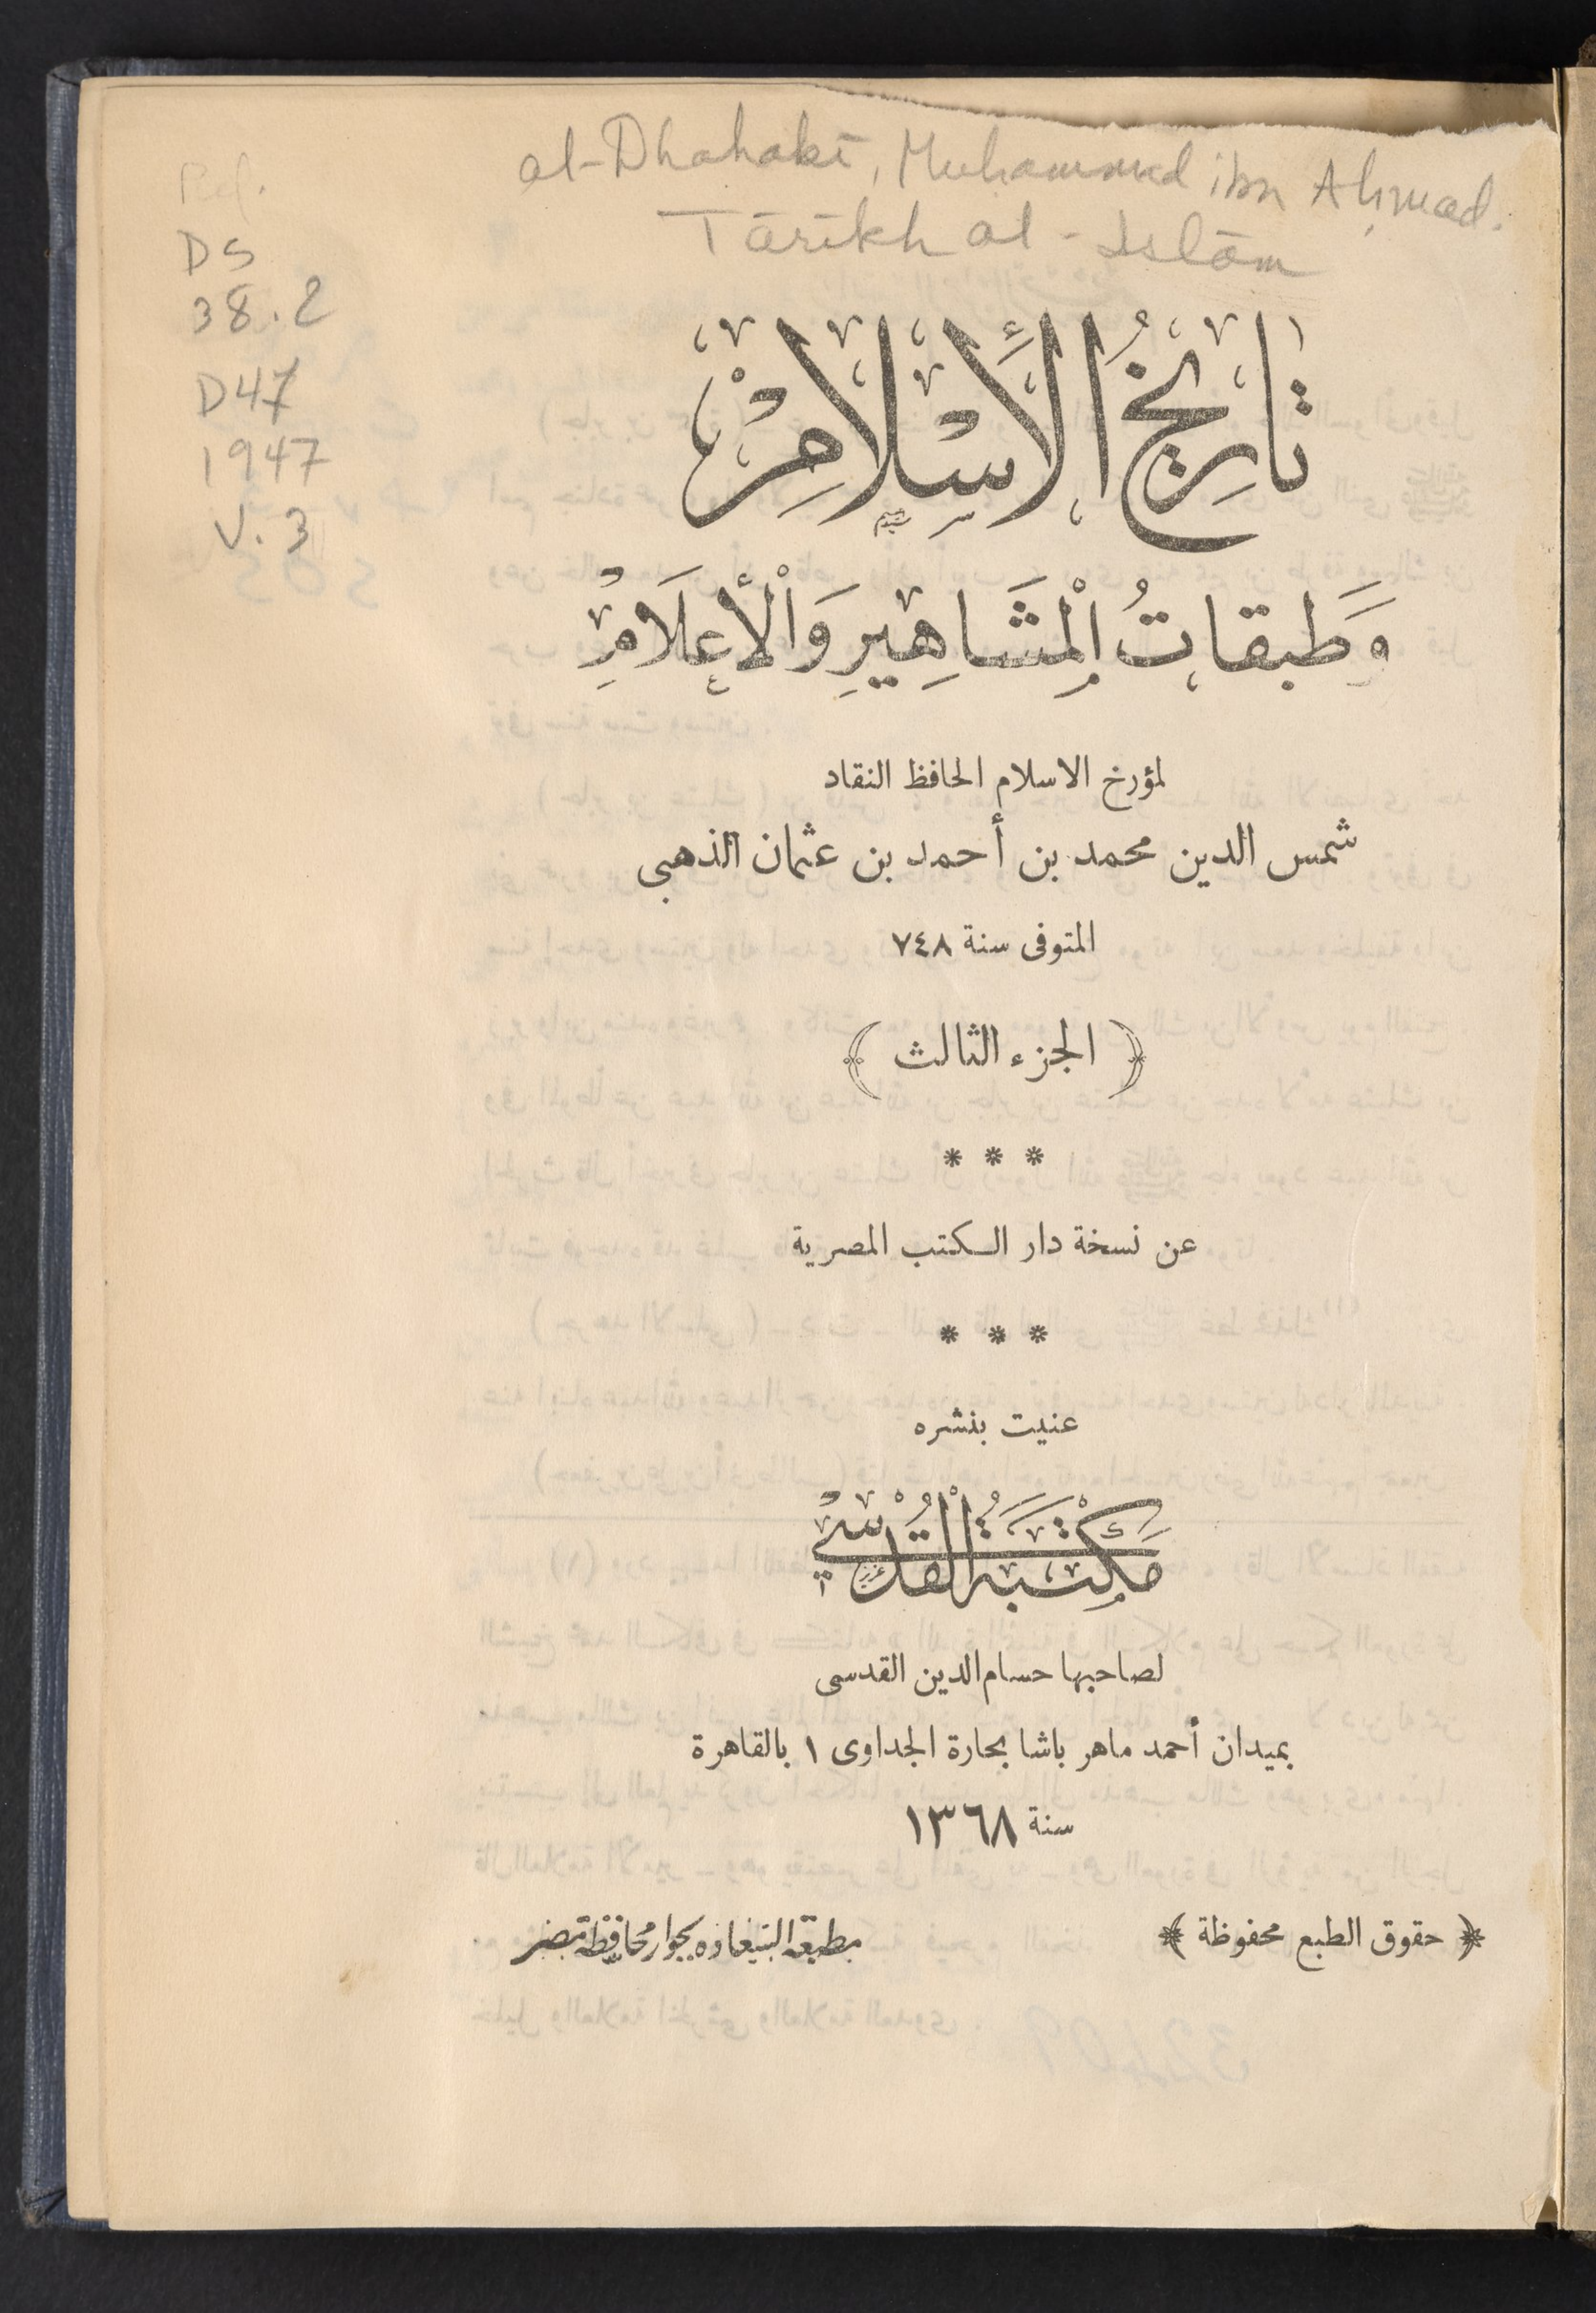 al-Dhahabī, Muhammad ibn Aḥmad.
Tārīkh al-Islām
Ref.
DS
38.2
D47
1947
V. 3
تَارِيخُ الْأَسْلَامِ
وَطَبَقَاتُ الْمَشَاهِيرِ وَالْأَعْلَامِ
لمؤرخ الاسلام الحافظ النقاد
شمس الدين محمد بن أحمد بن عثمان الذهبى
المتوفى سنة ٧٤٨
﴿ الجزء الثالث ﴾
* * *
عن نسخة دار الكتب المصرية
* * *
عنيت بنشره
مَكْتَبَةُ الْقُدْسِي
لصاحبها حسام الدين القدسى
بميدان أحمد ماهر باشا بحارة الجداوى ١ بالقاهرة
سنة ١٣٦٨
﴿ حقوق الطبع محفوظة ﴾
مطبعة السعادة بجوار محافظة مصر